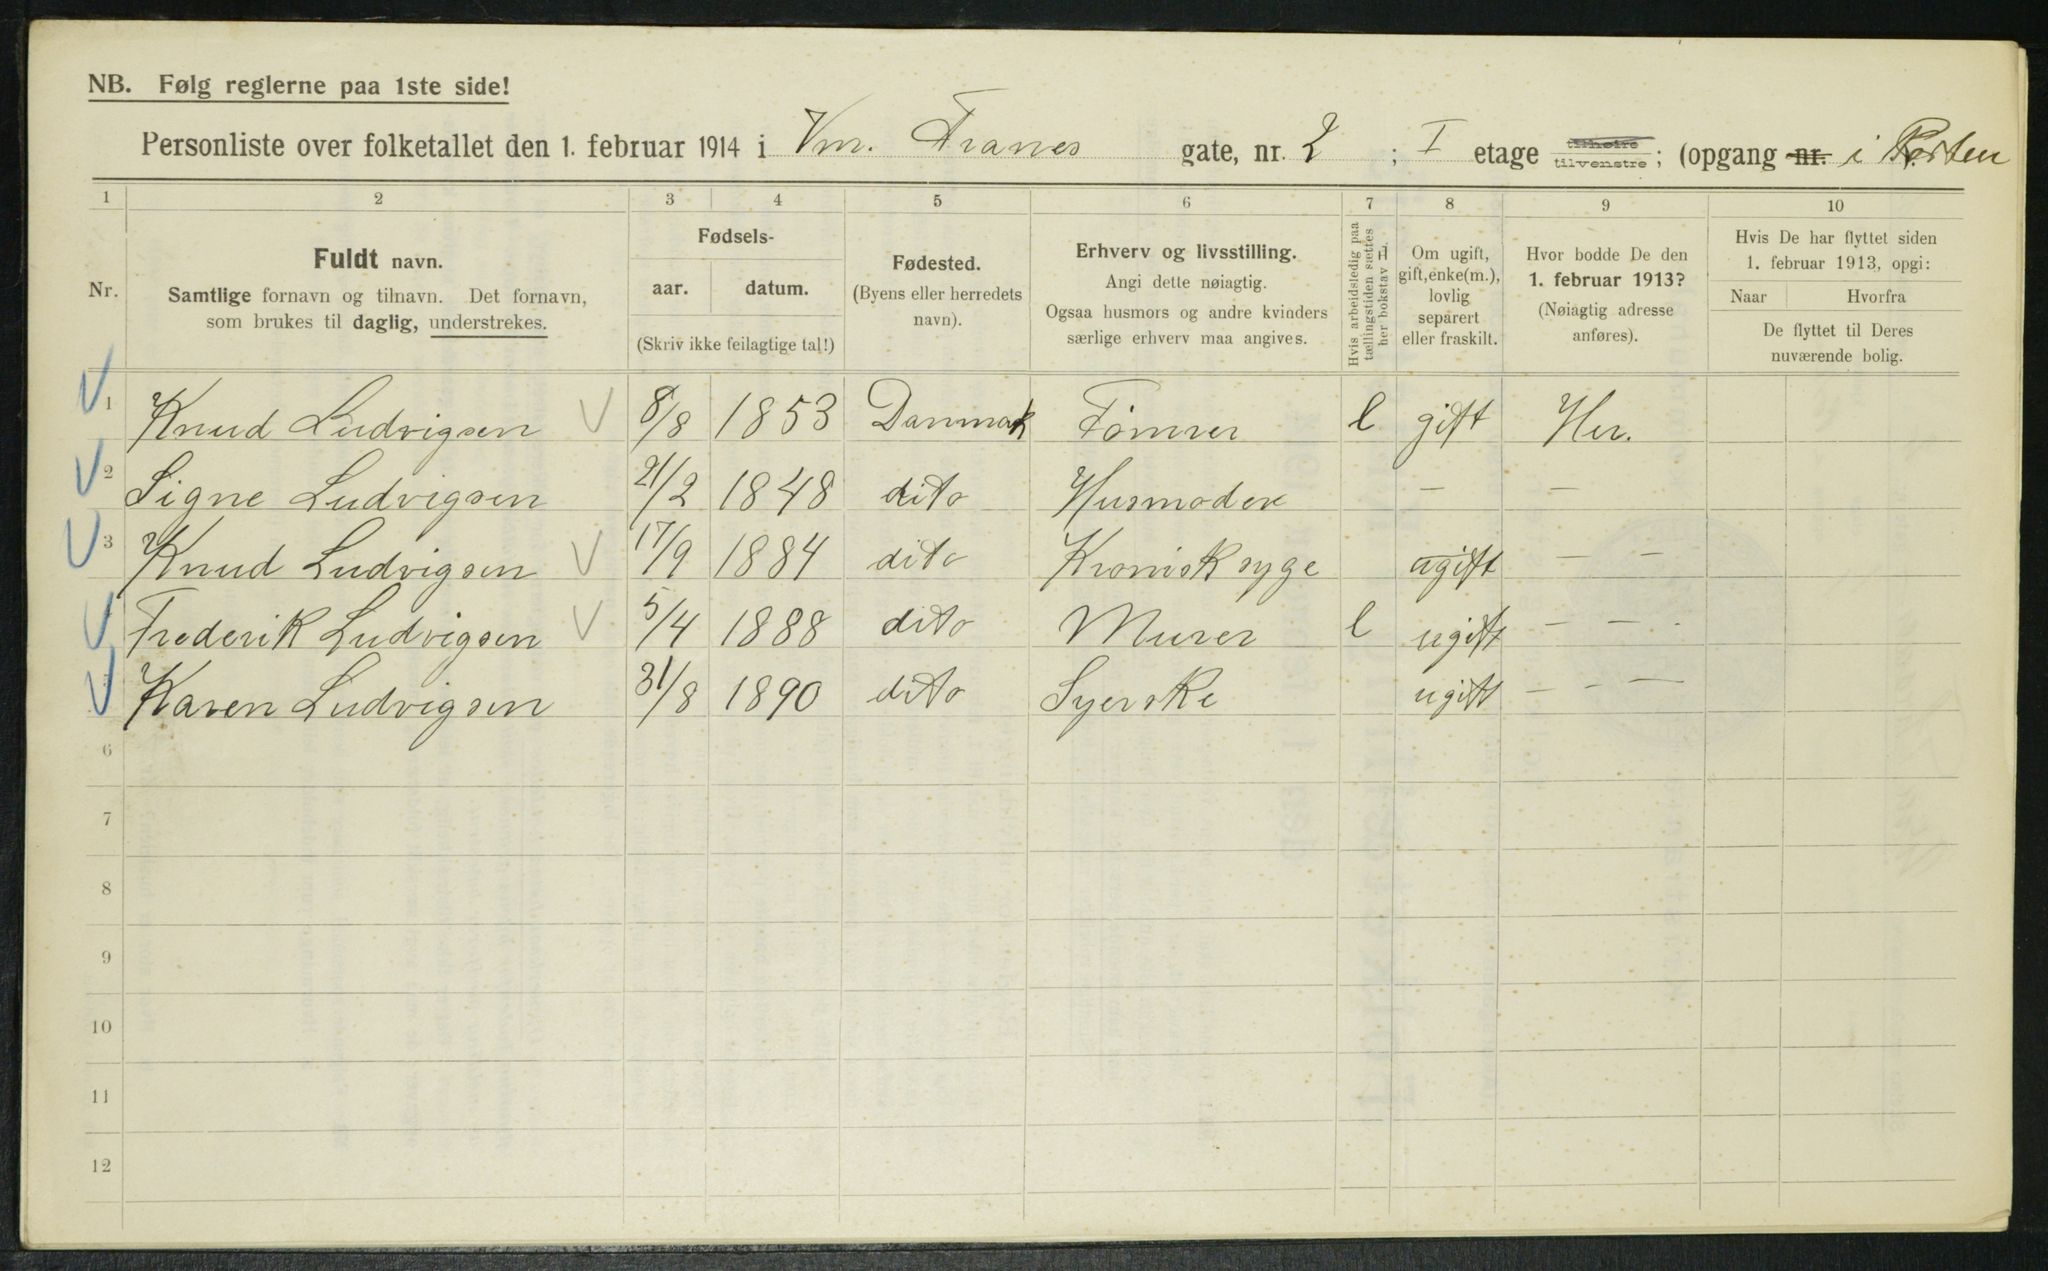 NB. Følg reglerne paa 1ste side!
Personliste over folketallet den 1. februar 1914 i Vm. Tranes gate, nr. 2 ; I etage tilhøire tilvenstre ; (opgang nr. i Porten
1 2 3 4 5 6 7 8 9 10
Nr.
Fuldt navn.
Samtlige fornavn og tilnavn. Det fornavn,
som brukes til daglig, understrekes.
Fødsels-
aar. datum.
(Skriv ikke feilagtige tal!)
Fødested.
(Byens eller herredets
navn).
Erhverv og livsstilling.
Angi dette nøiagtig.
Ogsaa husmors og andre kvinders
særlige erhverv maa angives.
Hvis arbeidsledig paa
tællingstiden sættes
her bokstav L.
Om ugift,
gift, enke(m.),
lovlig
separert
eller fraskilt.
Hvor bodde De den
1. februar 1913?
(Nøiagtig adresse
anføres).
Hvis De har flyttet siden
1. februar 1913, opgi:
Naar Hvorfra
De flyttet til Deres
nuværende bolig.
1 Knud Ludvigsen 8/8 1853 Danmark Tömrer l gift Her.
2 Signe Ludvigsen 21/2 1848 dito Husmoder — —
3 Knud Ludvigsen 17/9 1884 dito Kronisk syge ugift — —
Frederik Ludvigsen 5/4 1888 dito Murer l ugift — — -
Karen Ludvigsen 31/8 1890 dito Syerske ugift — - —
6
7
8
9
10
11
12